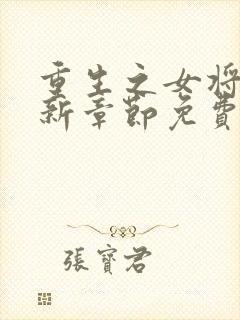 重生之女将
新章節免費
張寶君